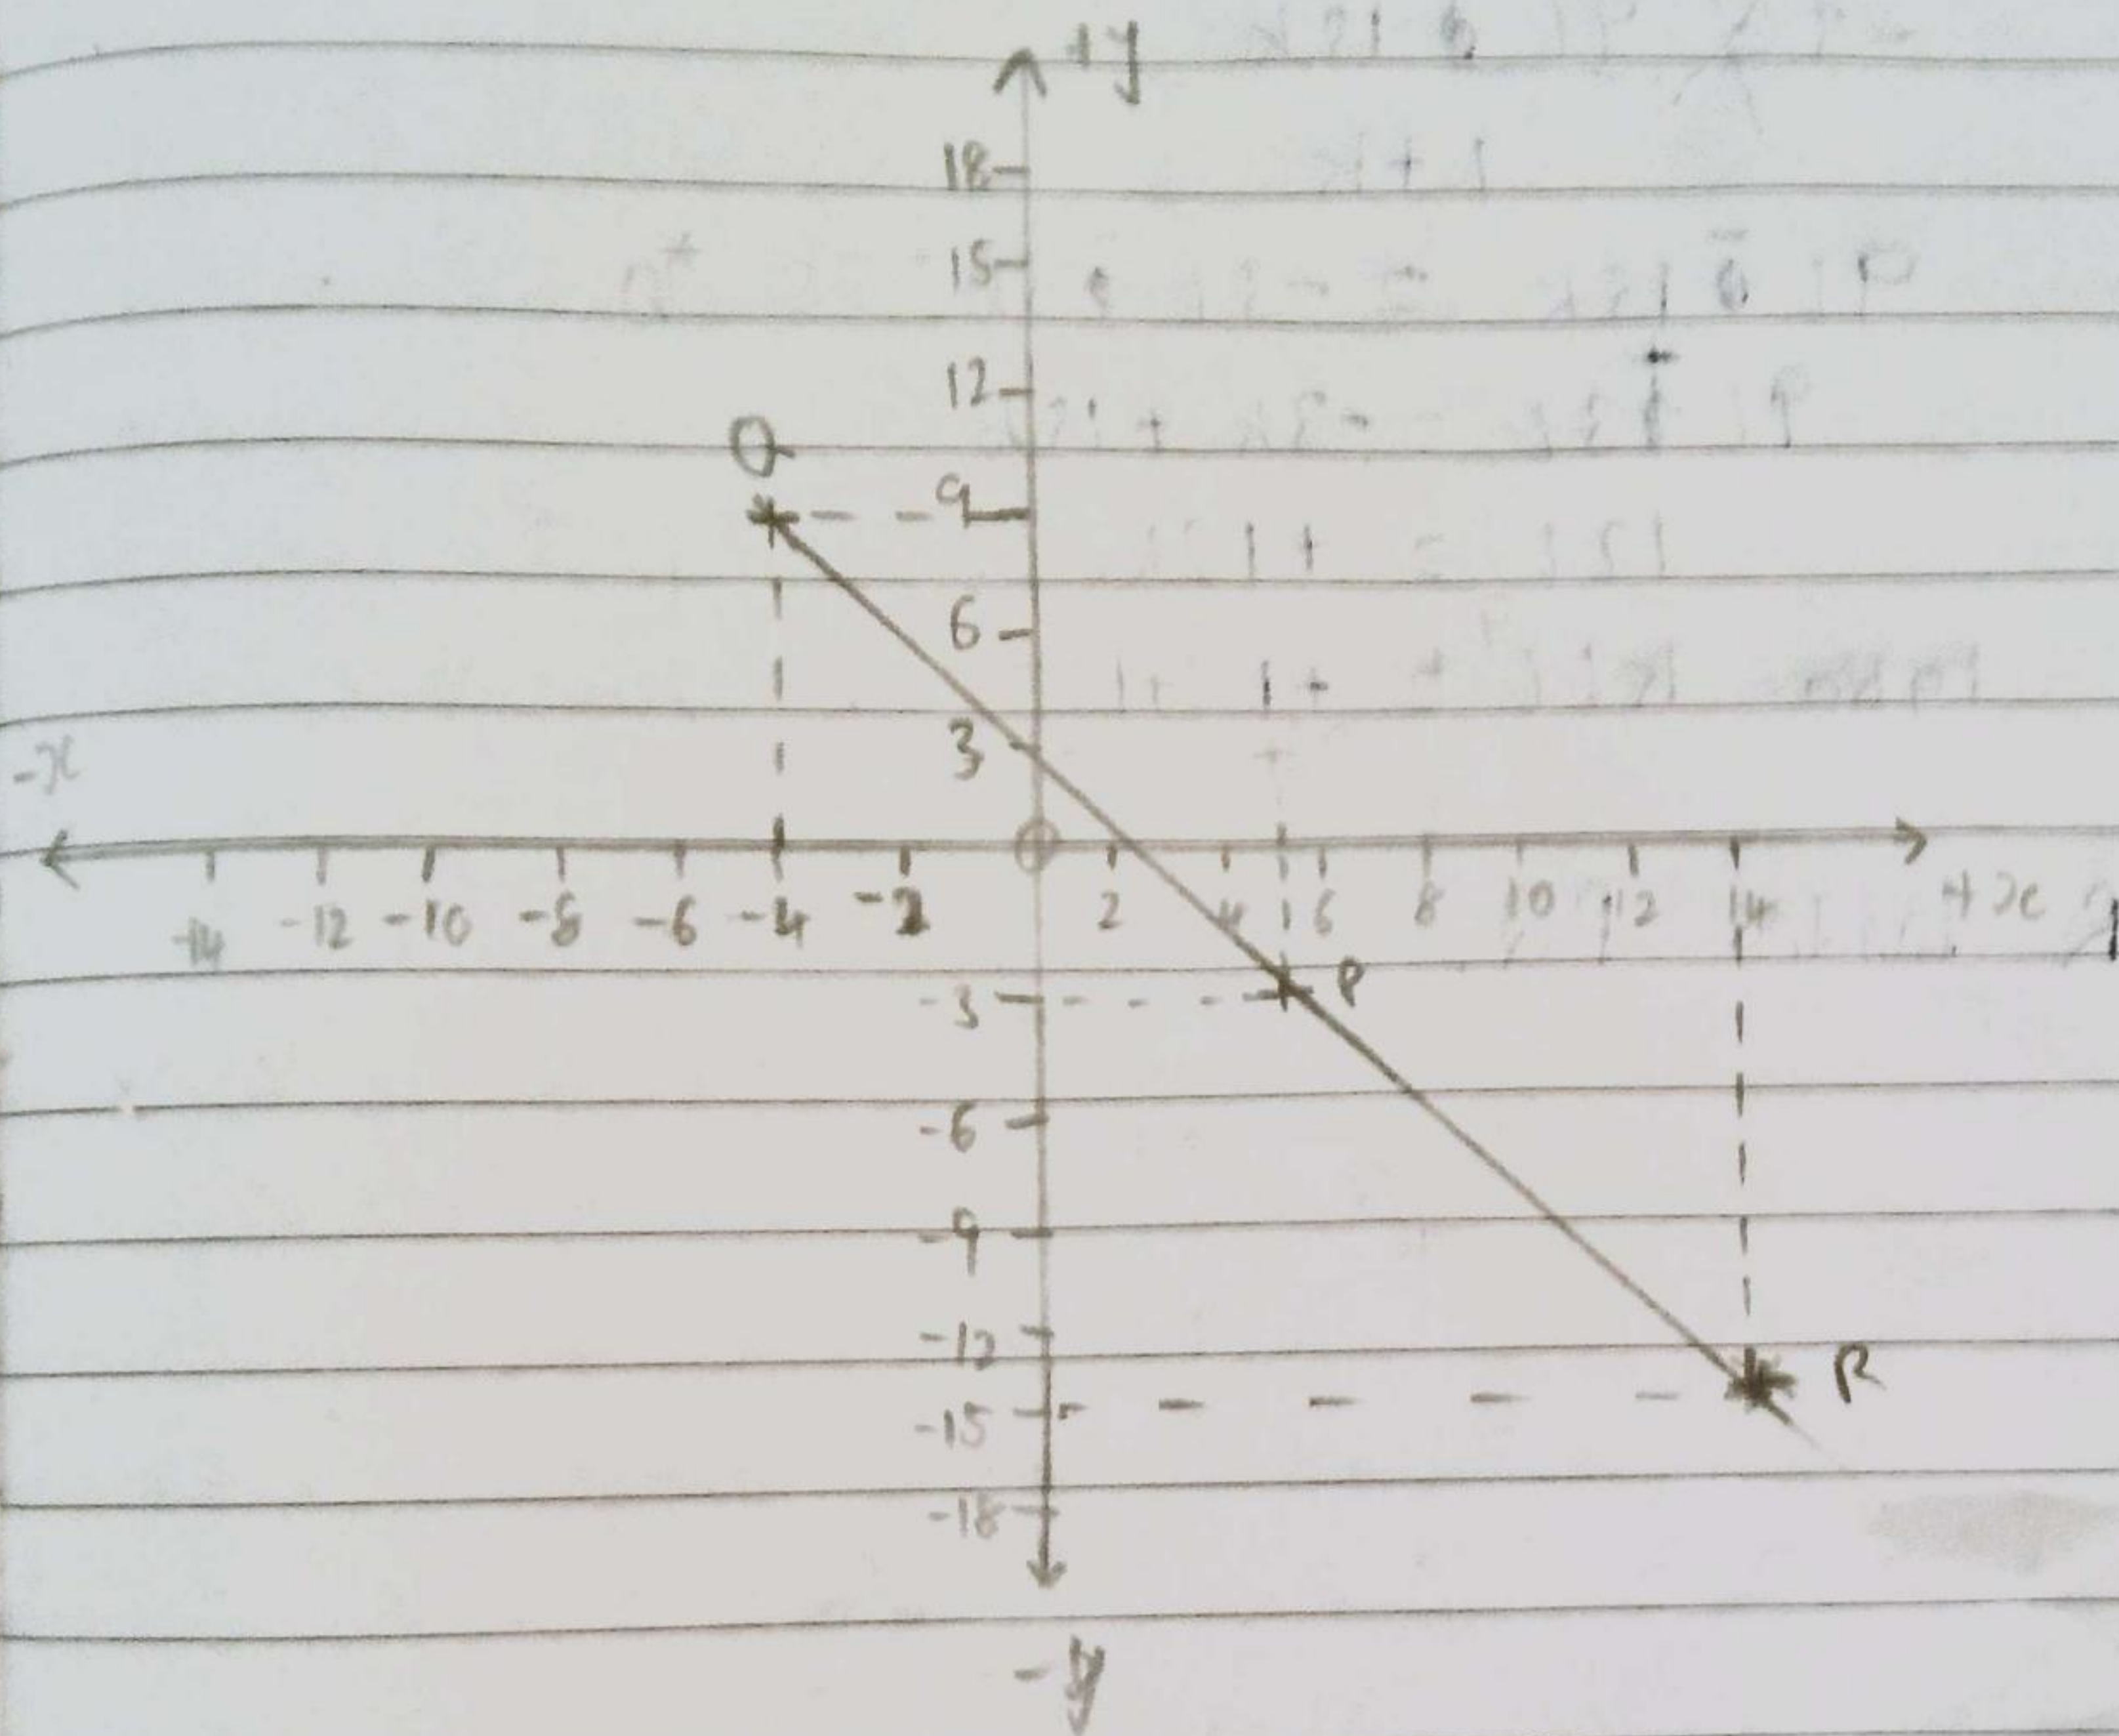 +y
18
15
12
Q
9
6
3
-x
-14 -12 -10 -8 -6 -4 -2 2 4 6 8 10 12 14 +x
-3 P
-6
-9
-12
R
-15
-18
-y